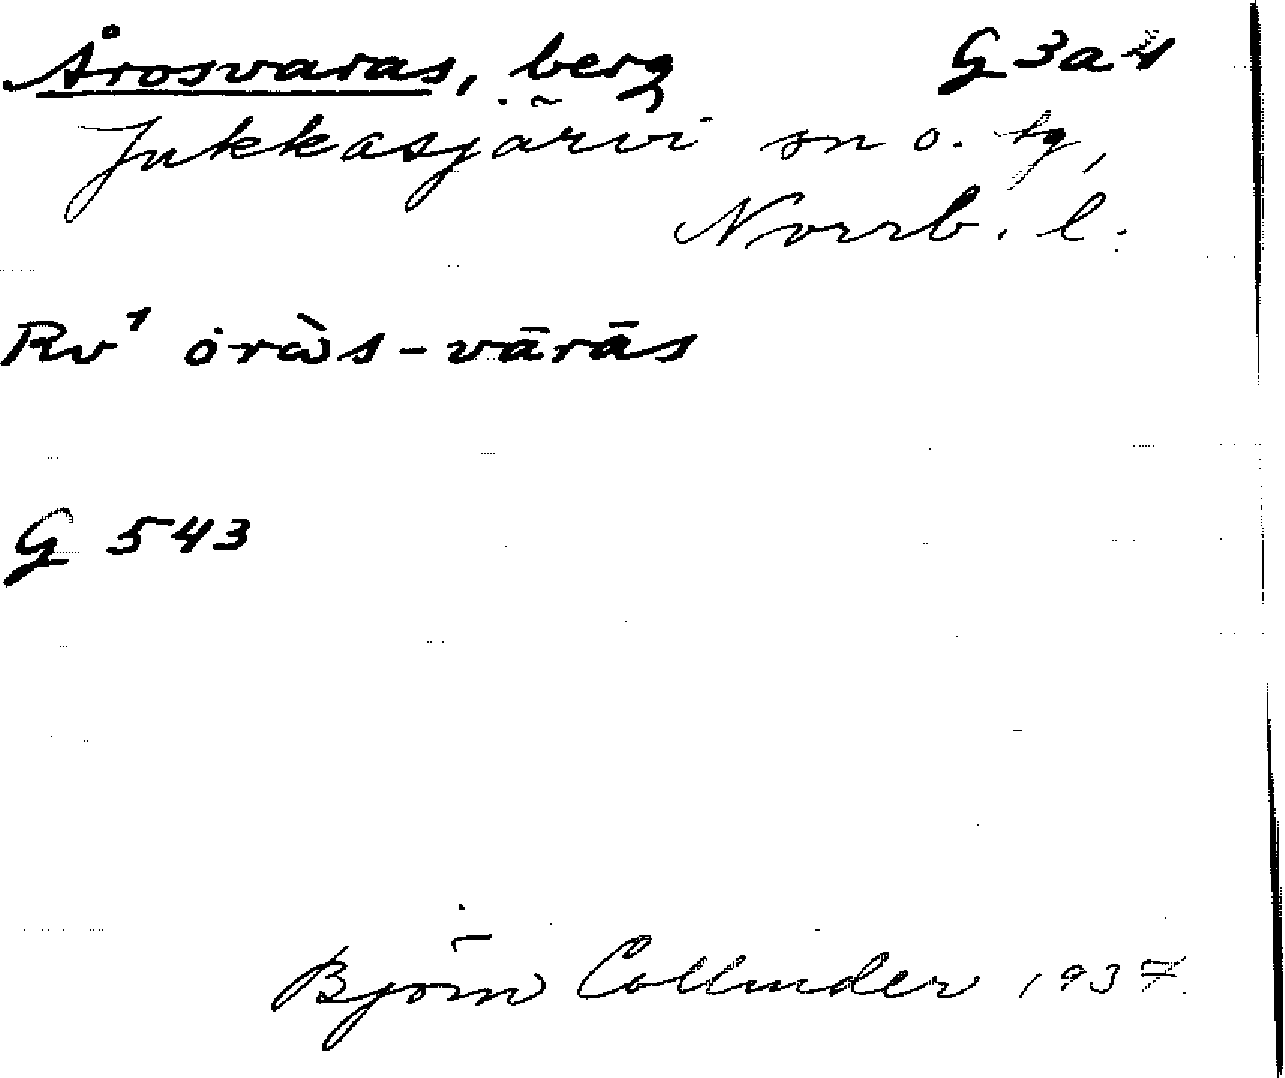 Årosvaras, berg G3a4
Jukkasjärvi sn o. tg,
Norrb. l.
Rv¹ ȯrὼs-vārās
G 543
Björn Collinder 1937.